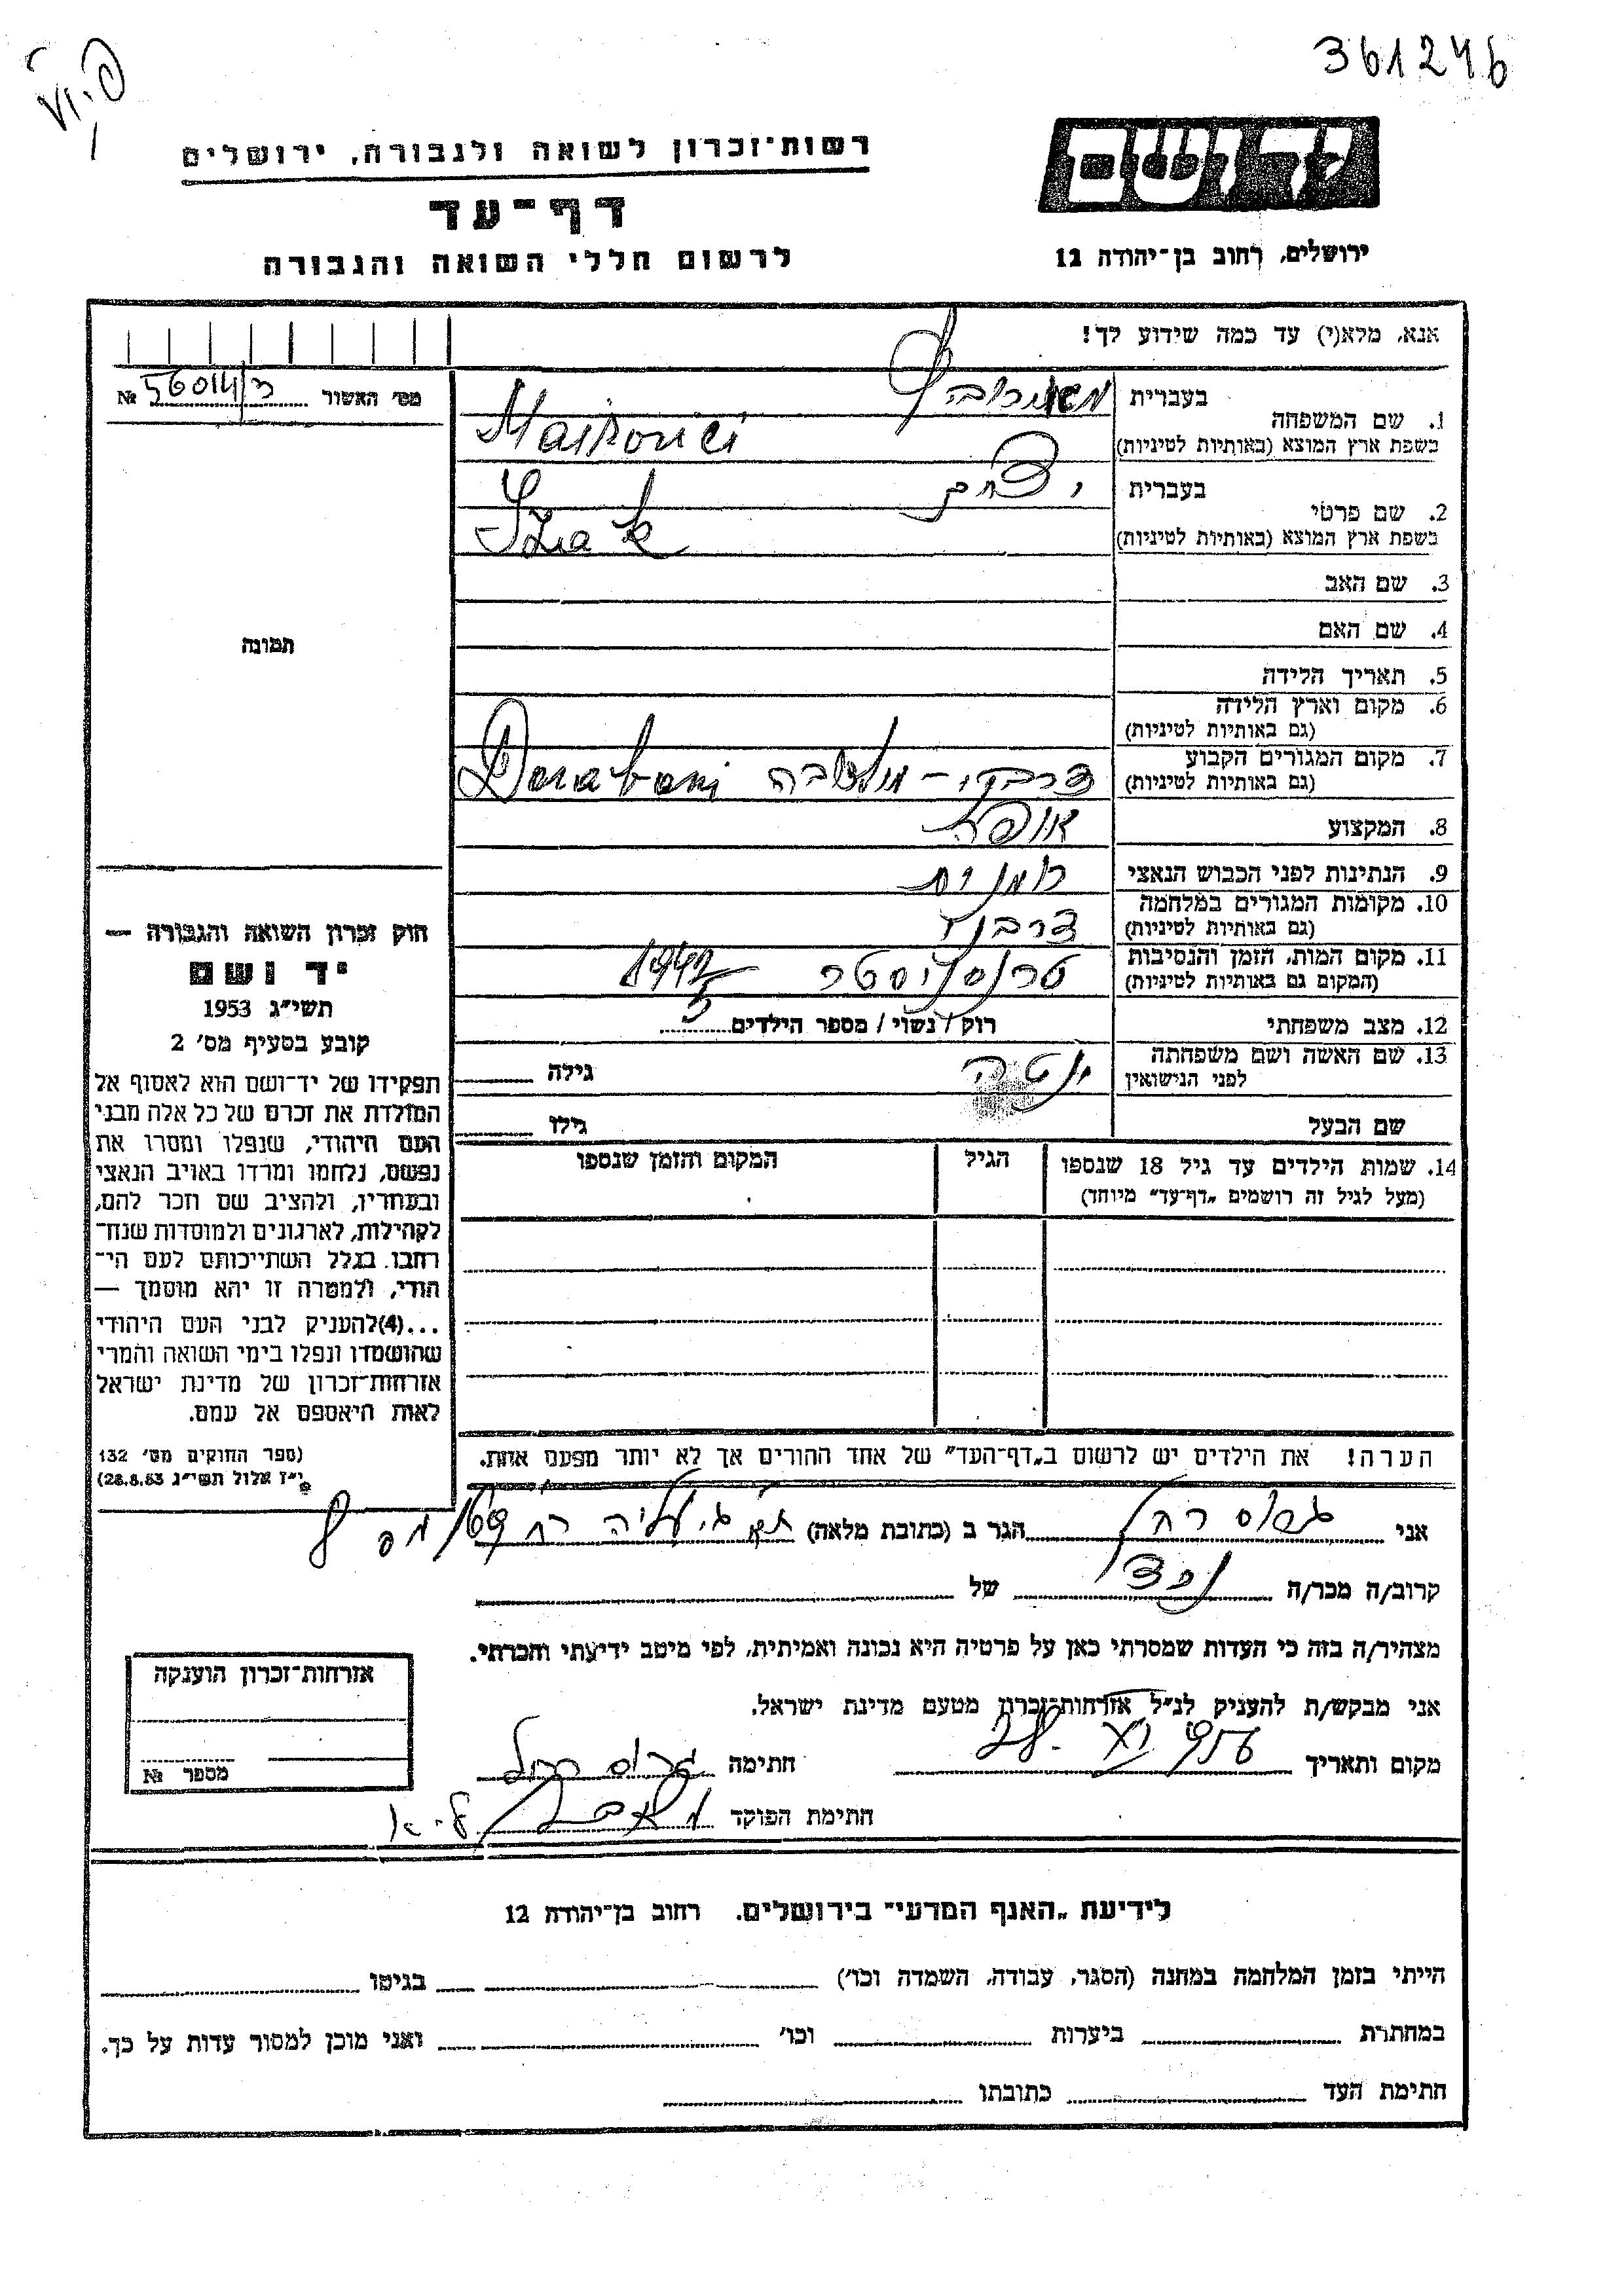 361246
רשות־זכרון לשואה ולגבורה, ירושלים
דף־עד
לרשום חללי השואה והגבורה
יד ושם
ירושלים, רחוב בן־יהודה 12
אנא, מלא(י) עד כמה שידוע לך!
מס׳ האשור 56014/כ №
1. שם המשפחה
בעברית
בשפת ארץ המוצא (באותיות לטיניות) Maikovici
2. שם פרטי
בעברית יצחק
בשפת ארץ המוצא (באותיות לטיניות) Izak
3. שם האב
4. שם האם
תמונה
5. תאריך הלידה
6. מקום וארץ הלידה
(גם באותיות לטיניות)
7. מקום המגורים הקבוע
(גם באותיות לטיניות) Darabani
8. המקצוע אופה
9. הנתינות לפני הכבוש הנאצי רומנית
10. מקומות המגורים במלחמה
(גם באותיות לטיניות)
11. מקום המות, הזמן והנסיבות
(המקום גם באותיות לטיניות) טרנסניסטר 1942
12. מצב משפחתי רוק / נשוי / מספר הילדים 5
13. שם האשה ושם משפחתה
לפני הנישואין יטה גילה
שם הבעל גילו
14. שמות הילדים עד גיל 18 שנספו
(מעל לגיל זה רושמים „דף־עד״ מיוחד)
הגיל
המקום והזמן שנספו
הערה! את הילדים יש לרשום ב„דף־העד״ של אחד ההורים אך לא יותר מפעם אחת.
חוק זכרון השואה והגבורה —
יד ושם
תשי״ג 1953
קובע בסעיף מס׳ 2
תפקידו של יד־ושם הוא לאסוף אל
המולדת את זכרם של כל אלה מבני
העם היהודי, שנפלו ומסרו את
נפשם, נלחמו ומרדו באויב הנאצי
ובעוזריו, ולהציב שם וזכר להם,
לקהילות, לארגונים ולמוסדות שנח־
רחבו בגלל השתייכותם לעם הי־
הודי, ולמטרה זו יהא מוסמך —
...(4)להעניק לבני העם היהודי
שהושמדו ונפלו בימי השואה והמרי
אזרחות־זכרון של מדינת ישראל
לאות היאספם אל עמם.
(ספר החוקים מס׳ 132
י״ז אלול תשי״ג 28.8.53)
אני הגר ב (כתובת מלאה)
קרוב/ה מכר/ה של
מצהיר/ה בזה כי העדות שמסרתי כאן על פרטיה היא נכונה ואמיתית, לפי מיטב ידיעתי והכרתי.
אני מבקש/ת להעניק לנ״ל אזרחות־זכרון מטעם מדינת ישראל.
מקום ותאריך חתימה
חתימת הפוקד
אזרחות־זכרון הוענקה
מספר №
לידיעת „האגף המדעי״ בירושלים, רחוב בן־יהודה 12
הייתי בזמן המלחמה במחנה (הסגר, עבודה, השמדה וכו׳) בגיטו
במחתרת ביערות וכו׳ ואני מוכן למסור עדות על כך.
חתימת העד כתובתו